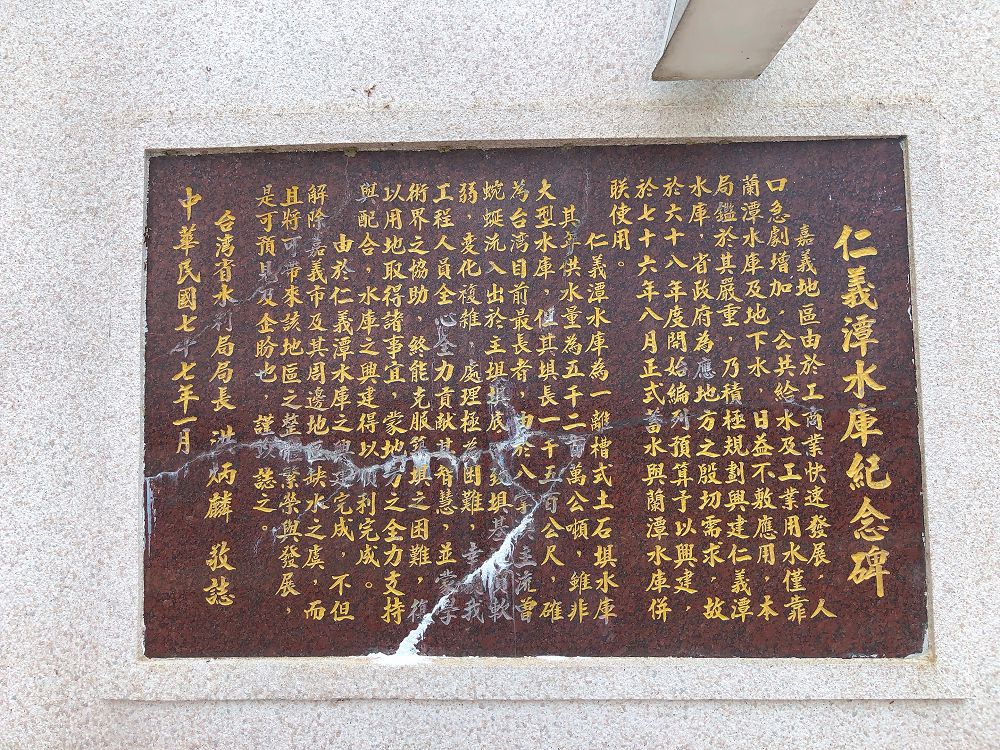 仁義潭水庫紀念碑
嘉義地區由於工商業快速發展，人
口急劇增加，公共給水及工業用水僅靠
蘭潭水庫及地下水，日益不敷應用，本
局鑑於其嚴重，乃積極規劃興建仁義潭
水庫，省政府為應地方之殷切需求，故
於六十八年度開始編列預算予以興建，
於七十六年八月正式蓄水與蘭潭水庫併
联使用。
仁義潭水庫為一離槽式土石壩水庫
其年供水量為五千二百萬公噸，雖非
大型水庫，但其壩長一千五百公尺，確
為台湾目前最長者，由於八掌溪主流曾
蜿蜒流入出於主壩壩底，致壩基軟
弱，變化複雜，處理極為困難，幸我
工程人員全心全力貢獻其智慧，並學
術界之協助，終能克服築壩之困難，復
以用地取得諸事宜，蒙地方之全力支持
與配合，水庫之興建得以順利完成。
由於仁義潭水庫之興建完成，不但
解除嘉義市及其周邊地區缺水之虞，而
且將可帶來該地區之整體繁榮與發展，
是可預見及企盼也，謹以誌之。
台湾省水利局局長 洪炳麟 敬誌
中華民國七十七年一月